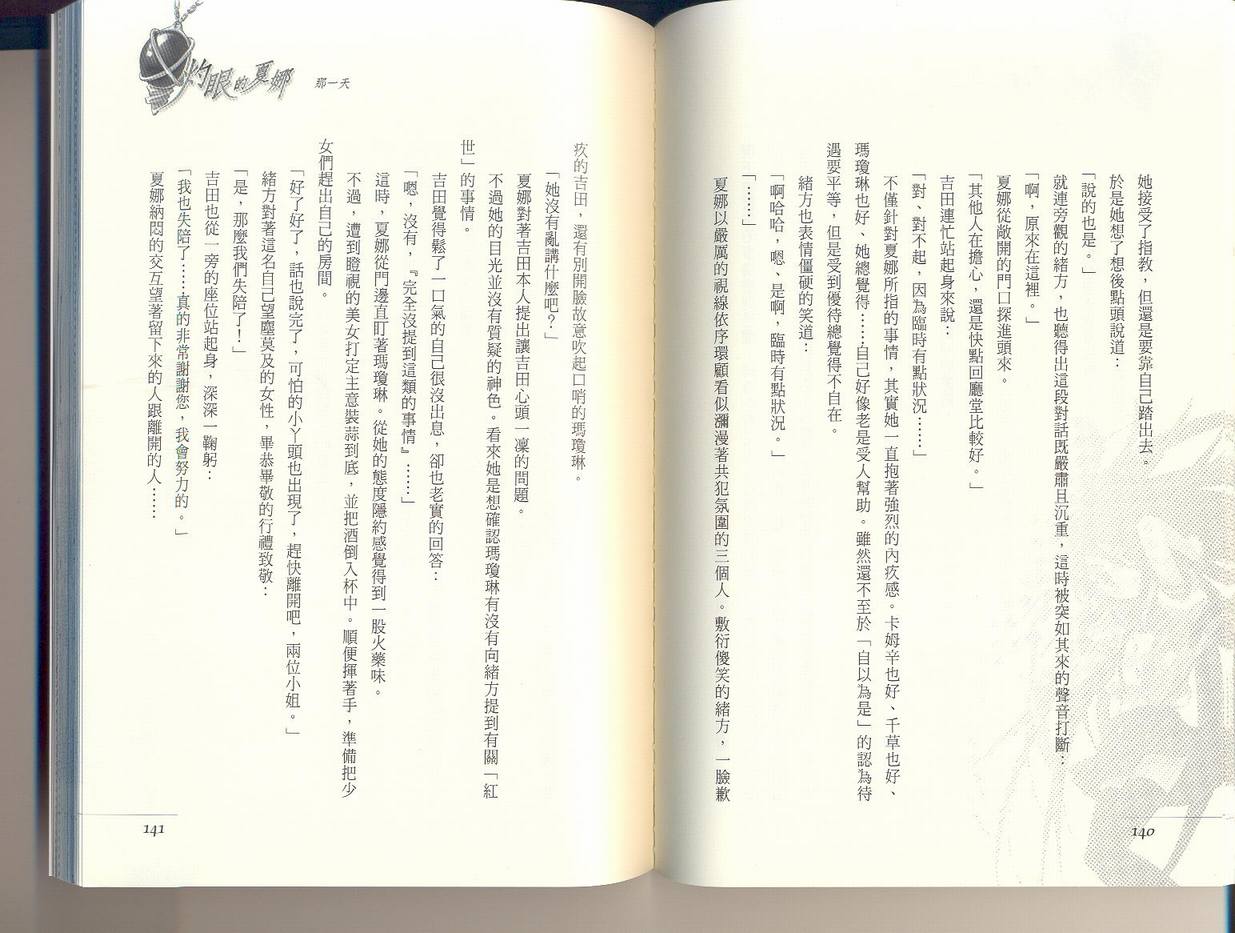 她接受了指教，但還是要靠自己踏出去。
於是她想了想後點頭說道：
「說的也是。」
就連旁觀的緒方，也聽得出這段對話既嚴肅且沉重，這時被突如其來的聲音打斷：
「啊，原來在這裡。」
夏娜從敞開的門口探進頭來。
「其他人在擔心，還是快點回廳堂比較好。」
吉田連忙站起身來說：
「對、對不起，因為臨時有點狀況……」
不僅針對夏娜所指的事情，其實她一直抱著強烈的內疚感。卡姆辛也好、千草也好、
瑪瓊琳也好、她總覺得……自己好像老是受人幫助。雖然還不至於「自以為是」的認為待
遇要平等，但是受到優待總覺得不自在。
緒方也表情僵硬的笑道：
「啊哈哈，嗯、是啊，臨時有點狀況。」
「……」
夏娜以嚴厲的視線依序環顧看似瀰漫著共犯氛圍的三個人。敷衍傻笑的緒方，一臉歉
140
灼眼的夏娜 那一天
疚的吉田，還有別開臉故意吹起口哨的瑪瓊琳。
「她沒有亂講什麼吧？」
夏娜對著吉田本人提出讓吉田心頭一凜的問題。
不過她的目光並沒有質疑的神色。看來她是想確認瑪瓊琳有沒有向緒方提到有關「紅
世」的事情。
吉田覺得鬆了一口氣的自己很沒出息，卻也老實的回答：
「嗯，沒有，『完全沒提到這類的事情』……」
這時，夏娜從門邊直盯著瑪瓊琳。從她的態度隱約感覺得到一股火藥味。
不過，遭到瞪視的美女打定主意裝蒜到底，並把酒倒入杯中。順便揮著手，準備把少
女們趕出自己的房間。
「好了好了，話也說完了，可怕的小丫頭也出現了，趕快離開吧，兩位小姐。」
緒方對著這名自己望塵莫及的女性，畢恭畢敬的行禮致敬：
「是，那麼我們失陪了！」
吉田也從一旁的座位站起身，深深一鞠躬：
「我也失陪了……真的非常謝謝您，我會努力的。」
夏娜納悶的交互望著留下來的人跟離開的人……
141